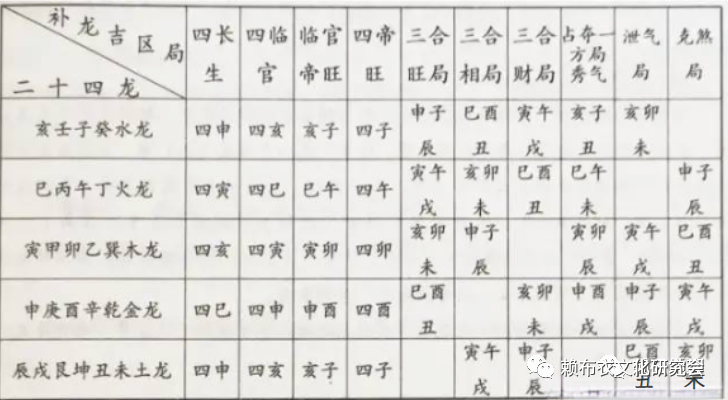 补龙吉区局
二十四龙
四长生 四临官 临官帝旺 四帝旺 三合旺局 三合相局 三合财局 占夺一方局秀气 泄气局 克煞局
亥壬子癸水龙 四申 四亥 亥子 四子 申子辰 巳酉丑 寅午戌 亥子丑 亥卯未
巳丙午丁火龙 四寅 四巳 巳午 四午 寅午戌 亥卯未 巳酉丑 巳午未 申子辰
寅甲卯乙巽木龙 四亥 四寅 寅卯 四卯 亥卯未 申子辰 寅卯辰 寅午戌 巳酉丑
申庚酉辛乾金龙 四巳 四申 申酉 四酉 巳酉丑 亥卯未 申酉戌 申子辰 寅午戌
辰戌艮坤丑未土龙 四申 四亥 亥子 四子 寅午戌 申子辰 巳酉丑 亥卯未
赖布衣文化研究会